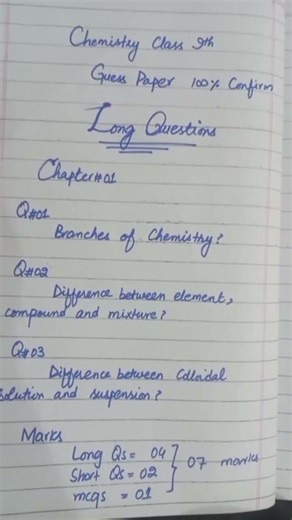 Chemistry Class 9th
Guess Paper 100% Confirm
Long Questions
Chapter#01
Q#01
Branches of Chemistry?
Q#02
Difference between element,
compound and mixture?
Q#03
Difference between Colloidal
solution and suspension?
Marks
Long Qs = 04
Short Qs = 02 } 07 marks
mcqs = 01